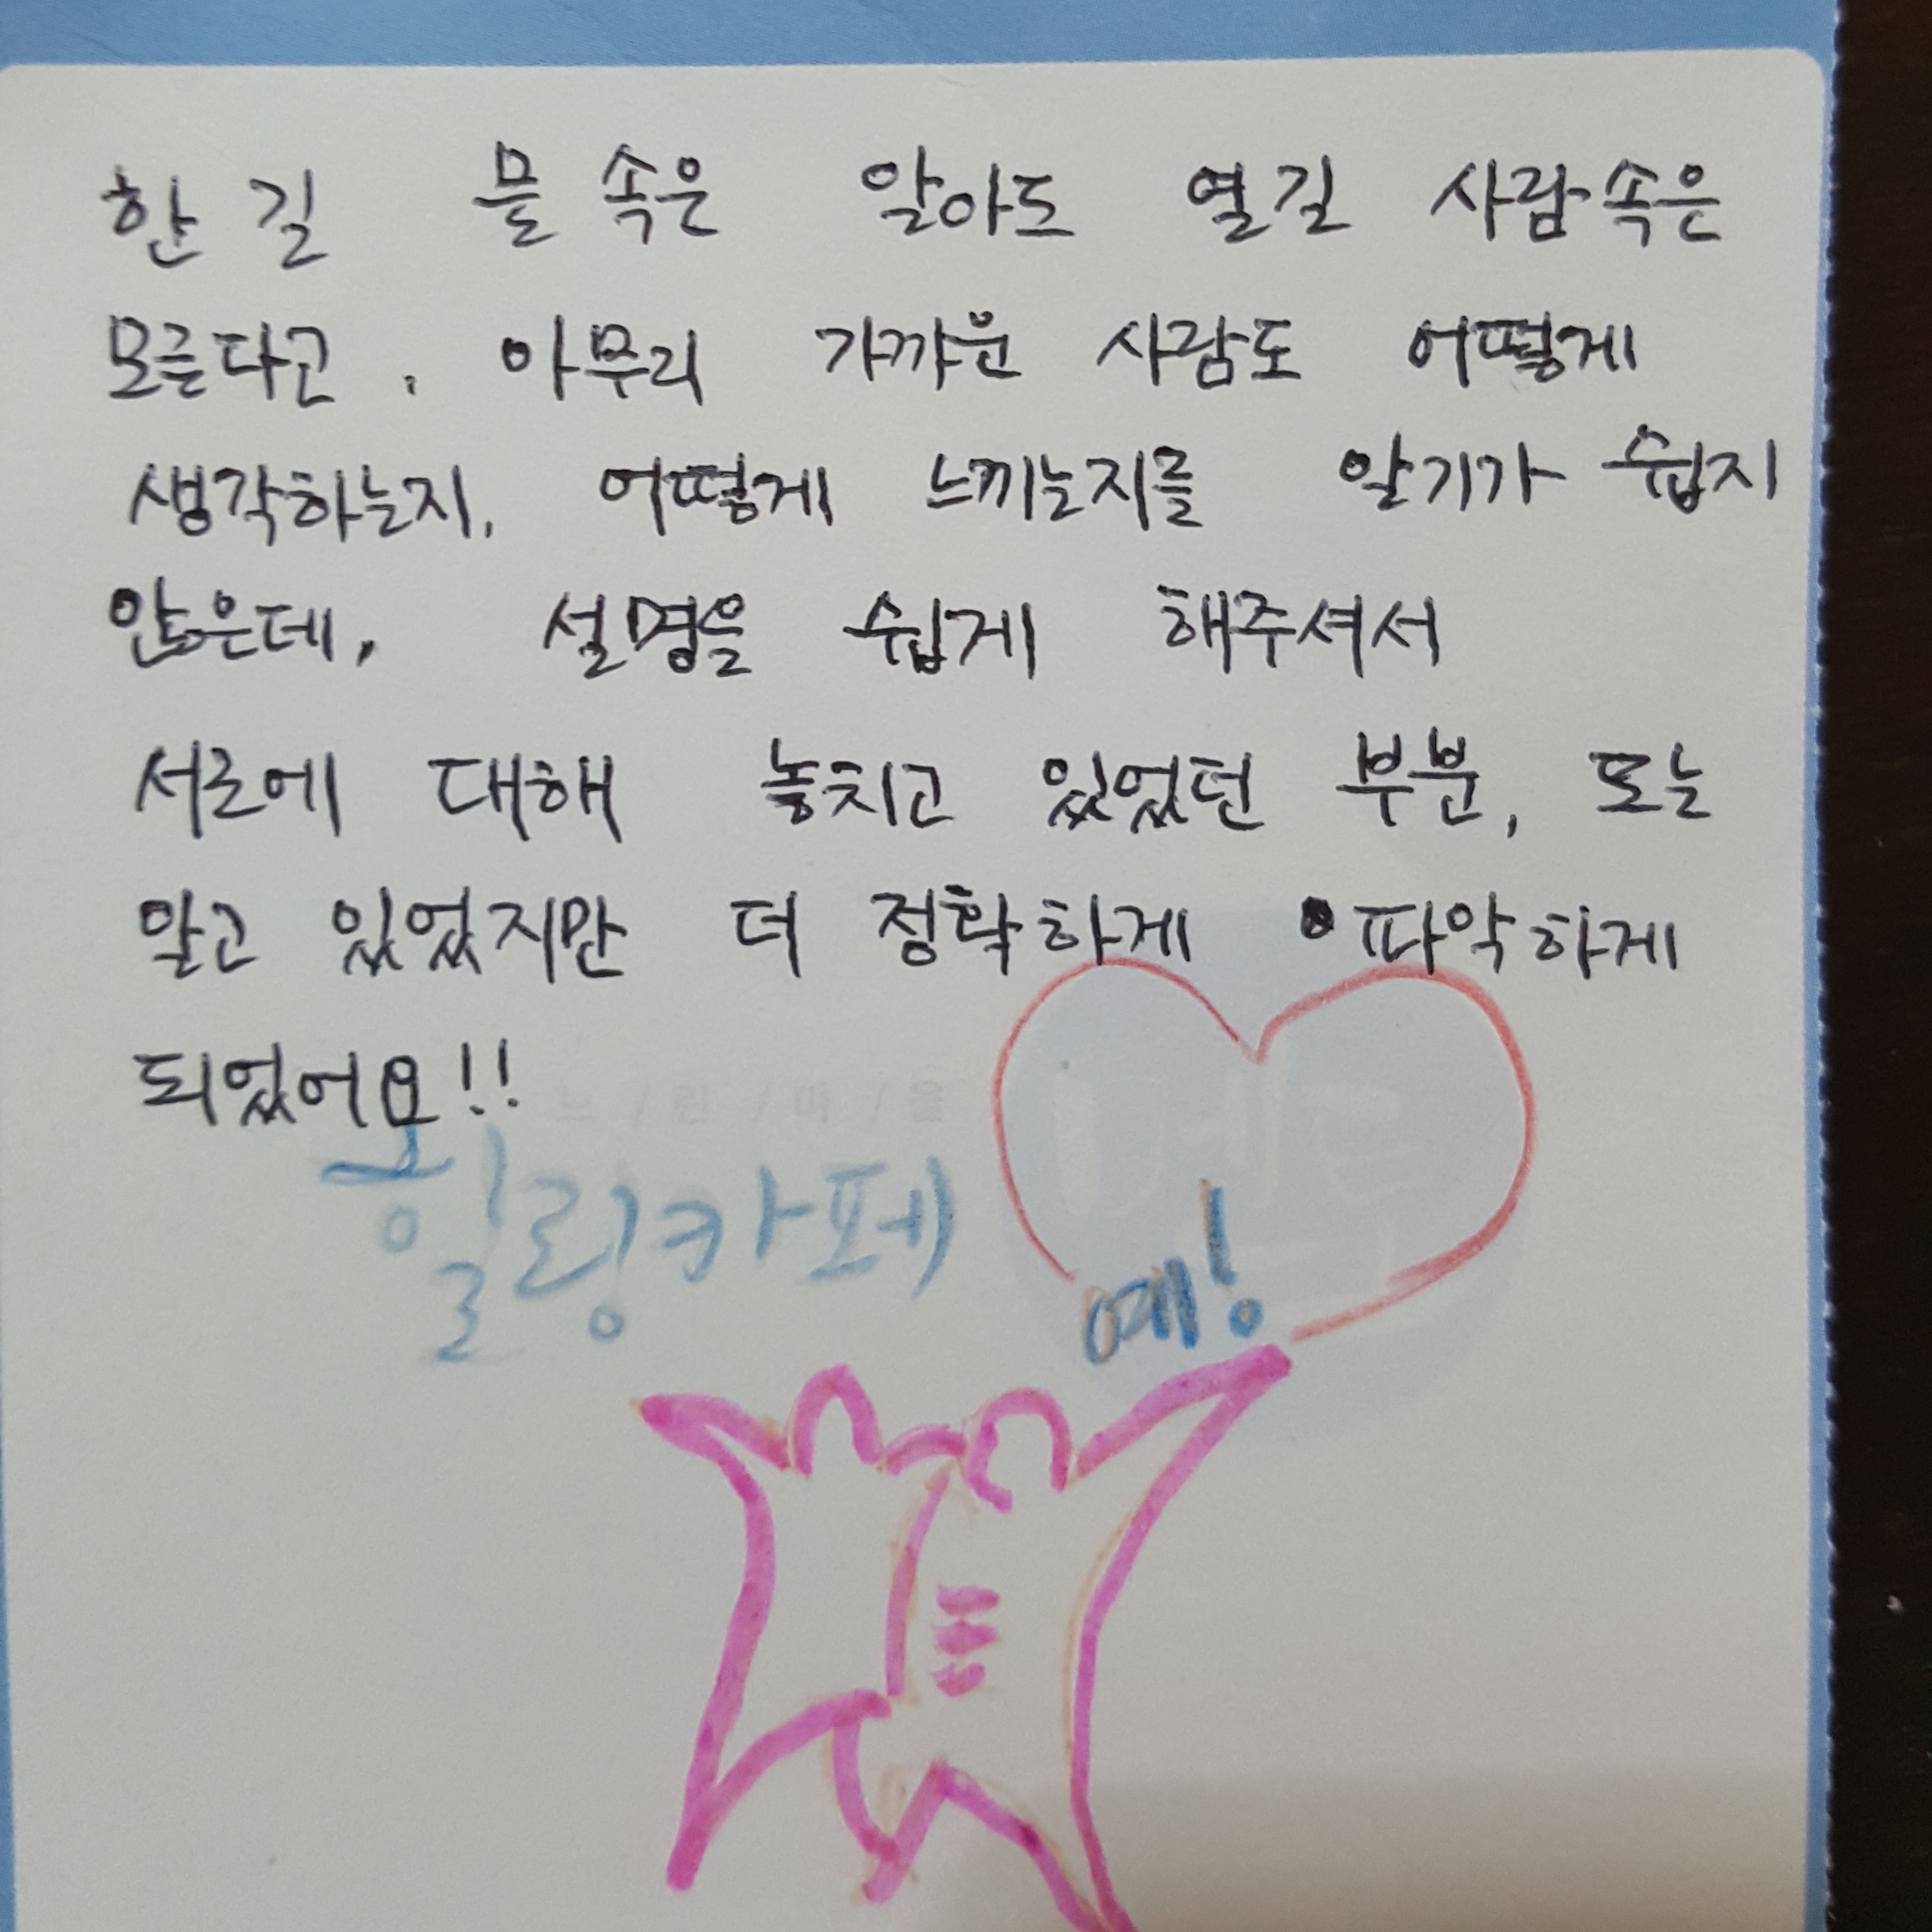 한 길 물 속은 알아도 열길 사람 속은
모른다고, 아무리 가까운 사람도 어떻게
생각하는지, 어떻게 느끼는지를 알기가 쉽지
않은데, 설명을 쉽게 해주셔서
서로에 대해 놓치고 있었던 부분, 또는
알고 있었지만 더 정확하게 파악하게
되었어요!!
느/린/마/을
힐링카페
예!